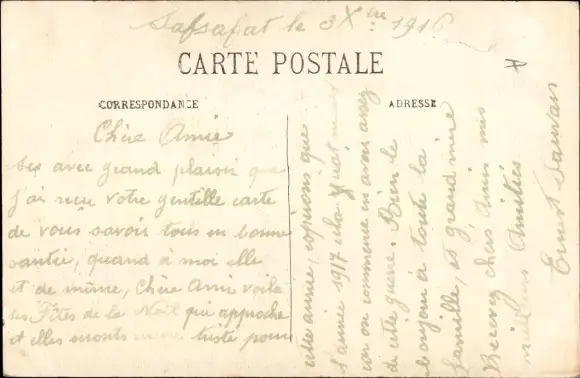 Safsafat le 3 Xbre 1916
CARTE POSTALE
CORRESPONDANCE
ADRESSE
Chère Amie
avec grand plaisir que
j'ai reçu votre gentille carte
de vous savoir tous en bonne
santée, quand à moi elle
et de même, Chère Amie voila
les Fêtes de la Noël qui approche
et elles seronts triste pour
cette année, espérons que
l'année 1917 sera
car on commence en avoir assez
de cette guerre. Bien le
bonjour à toute la
famille, et grand mère
Recevez chère Amie mes
meilleurs Amitiés
Ernest Sauvan